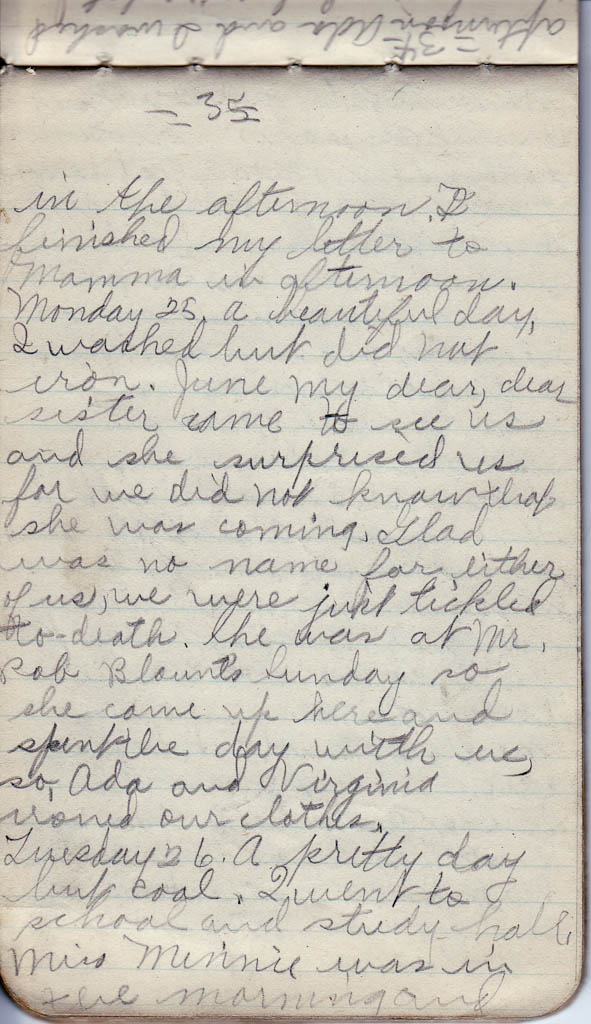 afternoon Ada and I washed
= 34 =
= 35 =
in the afternoon. I
finished my letter to
Mamma in afternoon.
Monday 25. a beautiful day,
I washed but did not
iron. June my dear, dear
sister came to see us
and she surprised us
for we did not know that
she was coming. Glad
was no name for either
of us, we were just tickled
to-death. She was at Mr.
Rob Blount's Sunday so
she come up here and
spent the day with us,
so, Ada and Virginia
ironed our clothes.
Tuesday 26. A pretty day
but cool. I went to
school and study hall;
Miss Minnie was in
the morning and